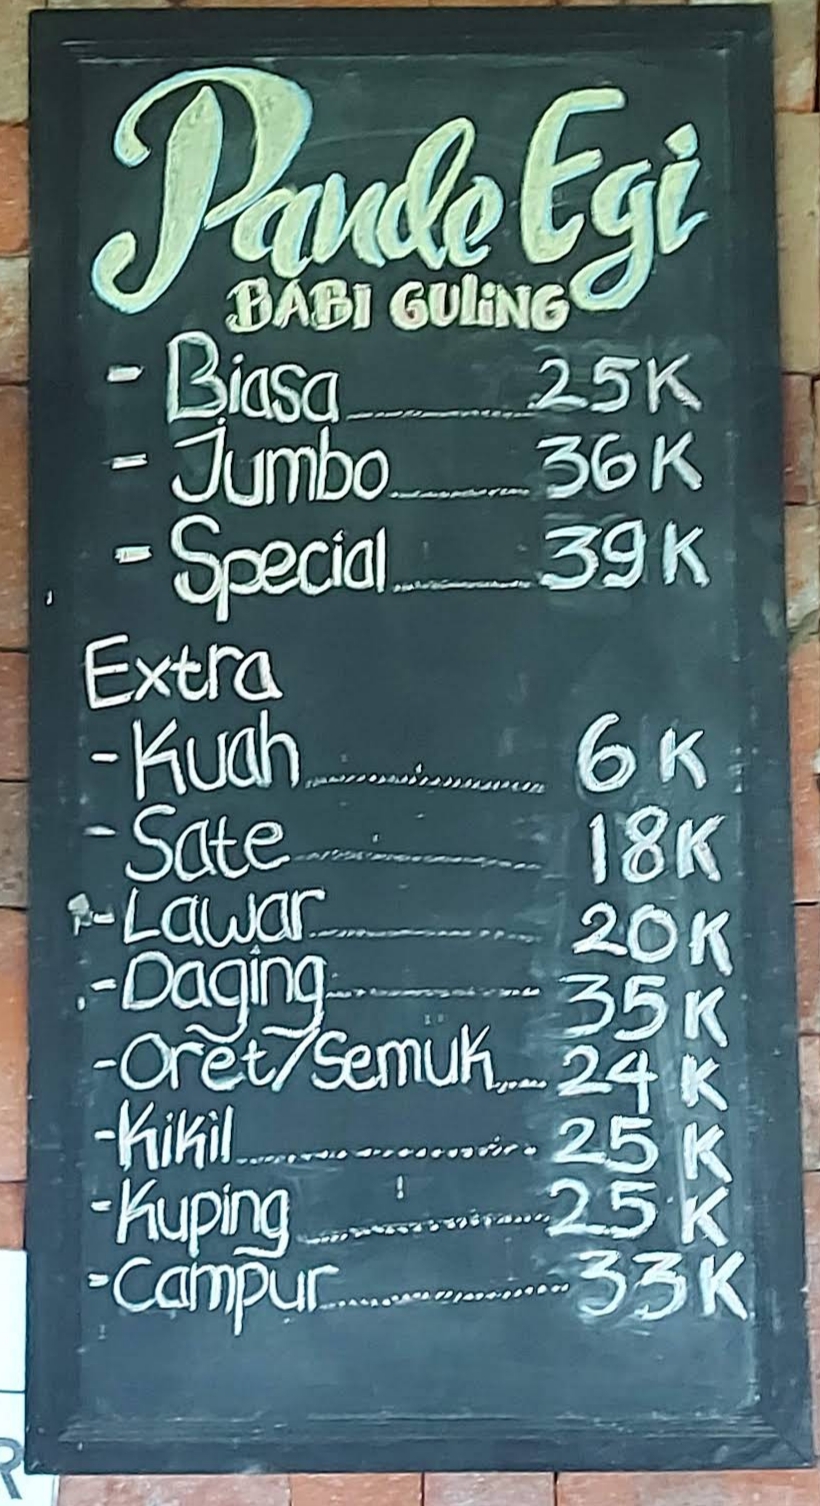 Pande Egi
BABI GULiNG
- Biasa 25K
- Jumbo 36K
- Special 39K
Extra
- Kuah 6K
- Sate 18K
- Lawar 20K
- Daging 35K
- Oret/Semuk 24K
- Kikil 25K
- Kuping 25K
- Campur 33K
R